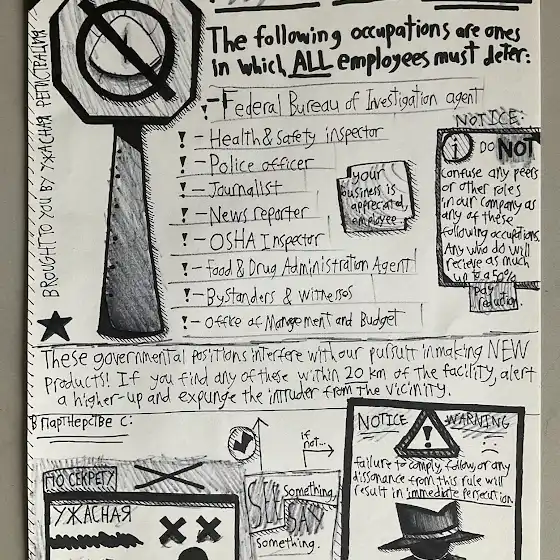 The following occupations are ones
in which ALL employees must deter:
BROUGHT TO YOU BY УЖАСНАЯ РЕГИСТРАЦИЯ
! - Federal Bureau of Investigation agent
! - Health & Safety inspector
! - Police officer
! - Journalist
! - News reporter
! - OSHA Inspector
! - Food & Drug Administration Agent
! - Bystanders & Witnesses
! - Office of Management and Budget
your
business is
appreciated,
employee.
NOTICE:
i DO NOT
confuse any peers
or other roles
in our company as
any of these
following occupations.
Any who do will
recieve as much
up to a 50%
pay
reduction.
These governmental positions interfere with our pursuit in making NEW
Products! If you find any of these within 20 km of the facility, alert
a higher-up and expunge the intruder from the vicinity.
В партнерстве с:
if
not...
ПО СЕКРЕТУ
УЖАСНАЯ
SEE Something,
SAY
something.
NOTICE ! WARNING
failure to comply, follow, or any
dissonance from this rule will
result in immediate persecution.